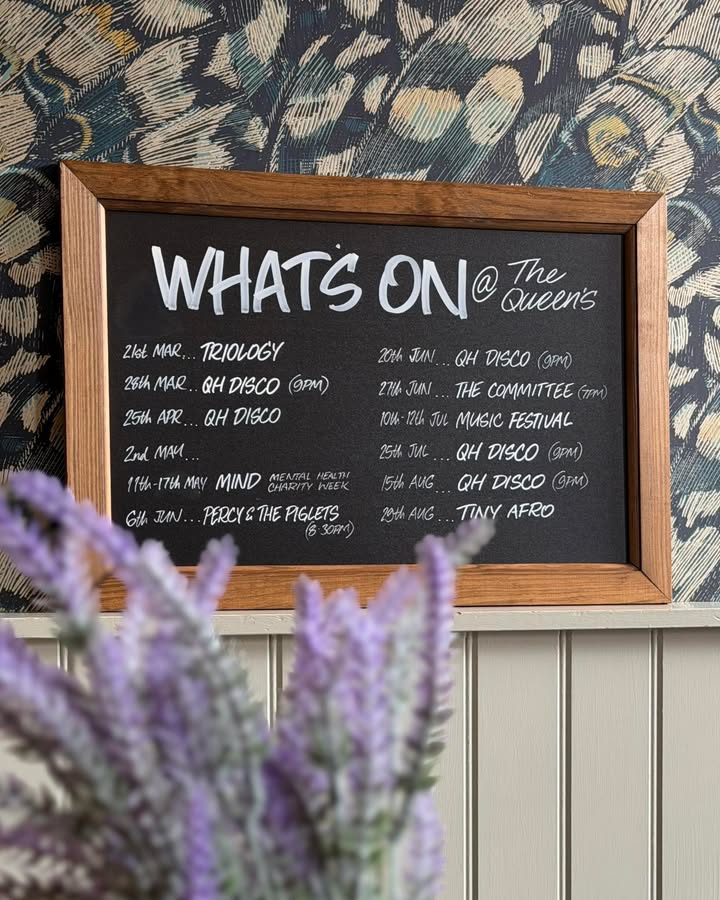 WHAT'S ON @ The Queen's
21st MAR... TRIOLOGY
28th MAR... QH DISCO (9PM)
25th APR... QH DISCO
2nd MAY...
11th-17th MAY MIND MENTAL HEALTH CHARITY WEEK
6th JUN... PERCY & THE PIGLETS (8:30PM)
20th JUN... QH DISCO (9PM)
27th JUN... THE COMMITTEE (7PM)
10th-12th JUL MUSIC FESTIVAL
25th JUL... QH DISCO (9PM)
15th AUG... QH DISCO (9PM)
29th AUG... TINY AFRO